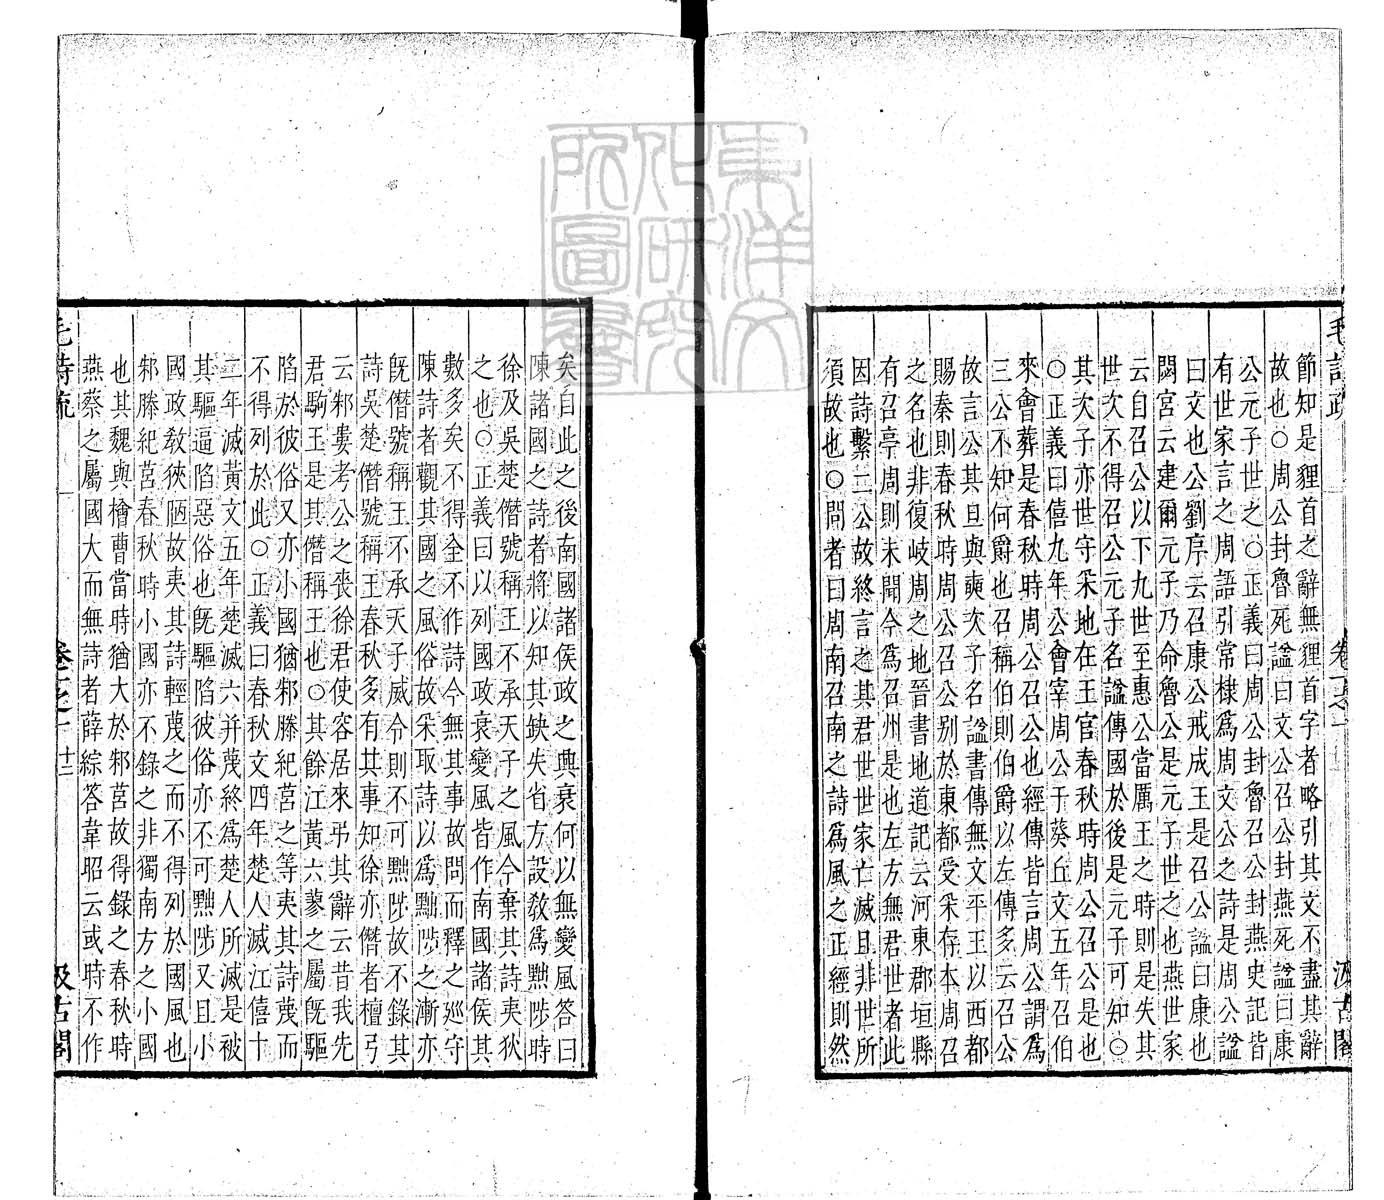 節知是貍首之辭無貍首字者略引其文不盡其辭
故也○周公封魯死諡曰文公召公封燕死諡曰康
公元子世之○正義曰周公封魯召公封燕史記皆
有世家言之周語引常棣爲周文公之詩是周公諡
曰文也公劉序云召康公戒成王是召公諡曰康也
閟宮云建爾元子乃命魯公是元子世之也燕世家
云自召公以下九世至惠公當厲王之時則是失其
世次不得召公元子名諡傳國於後是元子可知○
其次子亦世守采地在王官春秋時周公召公是也
○正義曰僖九年公會宰周公于葵丘文五年召伯
來會葬是春秋時周公召公也經傳皆言周公謂爲
三公不知何爵也召稱伯則伯爵以左傳多云召公
故言公其旦與奭次子名諡書傳無文平王以西都
賜秦則春秋時周公召公别於東都受采存本周召
之名也非復岐周之地晉書地道記云河東郡垣縣
有召亭周則未聞今爲召州是也左方無君世者此
因詩繫二公故終言之其君世世家亡滅且非世所
須故也○問者曰周南召南之詩爲風之正經則然
矣自此之後南國諸侯政之興衰何以無變風答曰
陳諸國之詩者將以知其缺失省方設教爲黜陟時
徐及吳楚僭號稱王不承天子之風今棄其詩夷狄
之也○正義曰以列國政衰變風皆作南國諸侯其
數多矣不得全不作詩今無其事故問而釋之廵守
陳詩者觀其國之風俗故采取詩以爲黜陟之漸亦
旣僭號稱王不承天子威令則不可黜陟故不錄其
詩吳楚僭號稱王春秋多有其事知徐亦僭者檀弓
云邾婁考公之喪徐君使容居來弔其辭云昔我先
君駒王是其僭稱王也○其餘江黃六蓼之屬旣驅
陷於彼俗又亦小國猶邾滕紀莒之等夷其詩蔑而
不得列於此○正義曰春秋文四年楚人滅江僖十
二年滅黃文五年楚滅六并蔑終爲楚人所滅是被
其驅逼陷惡俗也旣驅陷彼俗亦不可黜陟又且小
國政敎狹陋故夷其詩輕蔑之而不得列於國風也
邾滕紀莒春秋時小國亦不錄之非獨南方之小國
也其魏與檜曹當時猶大於邾莒故得錄之春秋時
燕蔡之屬國大而無詩者薛綜答韋昭云或時不作